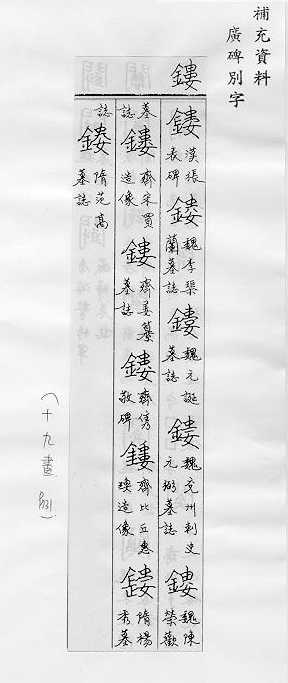 補充資料
廣碑別字
鏤
鏤 漢張表碑 鏤 魏李璧蘭墓誌 鏤 魏元誕墓誌 鏤 魏兗州刺史元弼墓誌 鏤 魏陳榮歡
墓誌 鏤 齊宋買造像 鏤 齊姜纂墓誌 鏤 齊雋敬碑 鏤 齊比丘惠瑍造像 鏤 隋楊秀墓
誌 鏤 隋范高墓誌
(十九畫